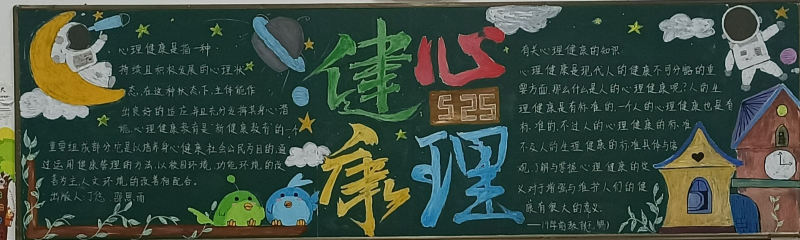 心理健康是指一种
持续且积极发展的心理状
态,在这种状态下,主体能作
出良好的适应,并且充分发挥其身心潜
能。心理健康教育是"新健康教育"的一个
重要组成部分,它是以培养身心健康社会公民为目的,通
过运用健康管理的方法,以校园环境,功能环境的改
善为主,人文环境的改善相配合。
出版人:
健
心
525
康
理
有关心理健康的知识
心理健康是现代人的健康不可分割的重
要方面,那么什么是人的心理健康呢?人的生
理健康是有标准的,一个人的心理健康也是有
标准的,不过人的心理健康的标准
不及人的生理健康的标准具体与客
观。了解与掌握心理健康的定
义对于增强与维护人们的健
康有很大的意义.